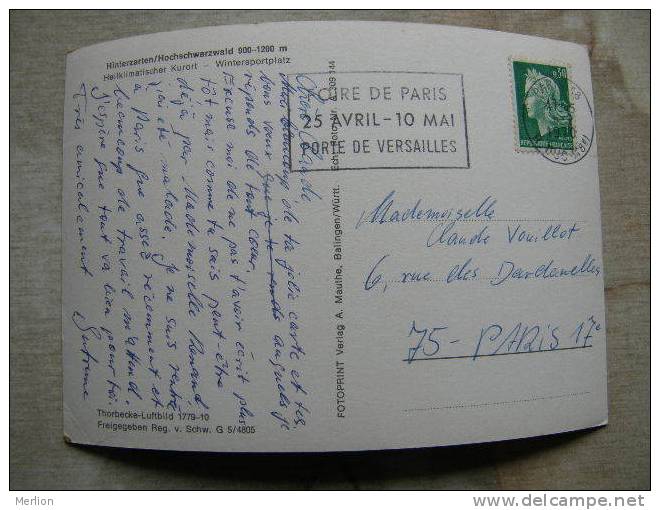 Hinterzarten/Hochschwarzwald 900-1200 m
Heilklimatischer Kurort - Wintersportplatz
Chère Claude
Merci beaucoup de ta jolie carte et tes
bons vœux auxquels je
réponds de tout cœur.
Excuse moi de ne pas t'avoir écrit plus
tôt mais comme tu sais peut-être
déjà par Mademoiselle
j'ai été malade. Je ne suis rentrée
à Paris que assez récemment et
beaucoup de travail m'attend.
J'espère que tout va bien pour toi
Très amicalement
Thorbecke-Luftbild 1779-10
Freigegeben Reg. v. Schw. G 5/4805
FOTOPRINT Verlag A. Mauthe, Balingen/Württ.
FOIRE DE PARIS
25 AVRIL - 10 MAI
PORTE DE VERSAILLES
0,30
REPUBLIQUE FRANÇAISE
1970
Mademoiselle
Claude Vouillot
6, rue des Dardanelles
75 - PARIS 17e
Merlion
www.delcampe.net